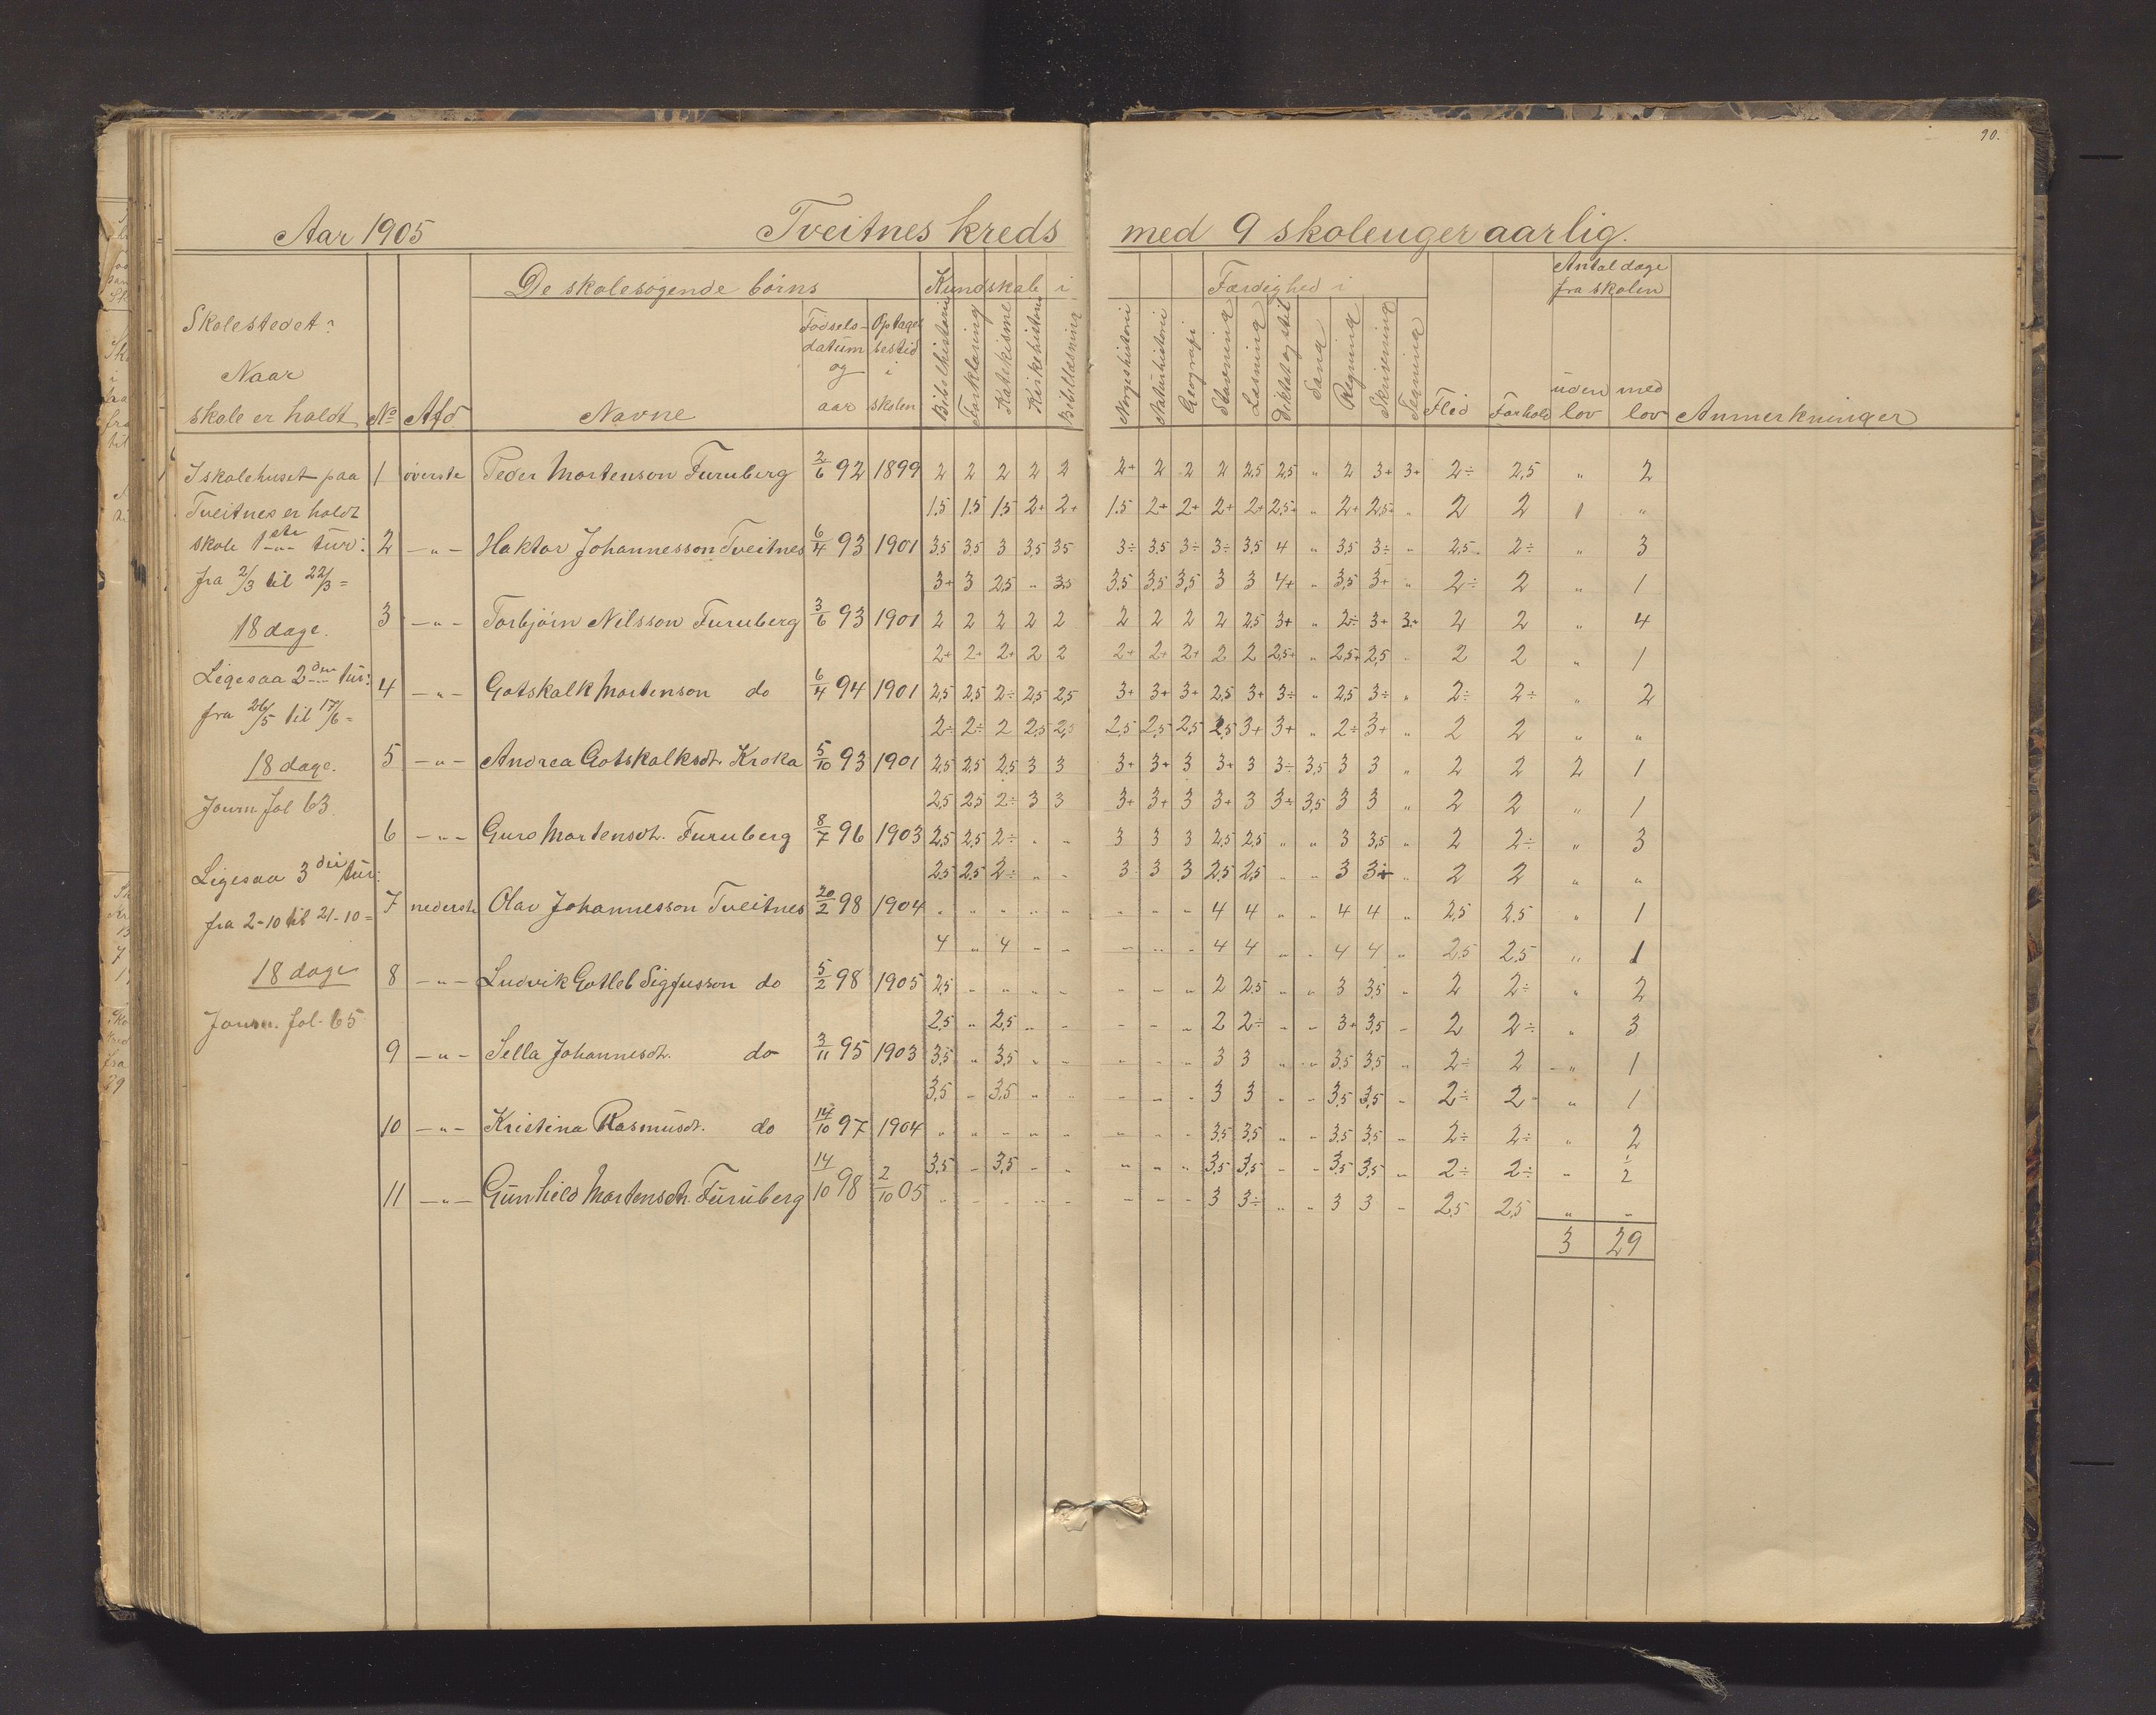 90.
Aar 1905 Tveitnes kreds med 9 skoleuger aarlig.
De skolesøgende börns Kundskab i Færdighed i Antal dage fra skolen
Skolestedet?
Naar
skole er holdt No Afd Navne Födsels-datum og aar Optagelsestid i skolen Bibelhistorie Forklaring Katekisme Kirkehistorie Bibellæsning Norgeshistorie Naturhistorie Geografi Stavning Læsning Diktat og stil Sang Regning Skrivning Tegning Flid Forhold uden lov med lov Anmerkninger
I skolehuset paa 1 överste Peder Mortenson Furuberg 2/6 92 1899 2 2 2 2 2 2+ 2 2 2 2,5 2,5 " 2 3+ 3+ 2÷ 2,5 " 2
Tveitnes er holdt 1.5 1.5 1.5 2+ 2+ 1.5 2+ 2+ 2+ 2+ 2,5+ " 2+ 2,5+ " 2 2 1 "
skole 1ste tur: 2 -"- Haktor Johannesson Tveitnes 6/4 93 1901 3,5 3,5 3 3,5 3,5 3÷ 3,5 3÷ 3÷ 3,5 4 " 3,5 3÷ " 2,5 2÷ " 3
fra 2/3 til 22/3 = 3+ 3 2,5 " 3,5 3,5 3,5 3,5 3 3 4+ " 3,5 3+ " 2÷ 2 " 1
18 dage. 3 -"- Torbjörn Nilsson Furuberg 3/6 93 1901 2 2 2 2 2 2 2 2 2 2,5 3+ " 2÷ 3+ 3+ 2 2 " 4
2+ 2+ 2+ 2 2 2+ 2+ 2+ 2 2 2,5+ " 2,5+ 2,5 " 2 2 " 1
Ligesaa 2den tur: 4 -"- Gotskalk Mortenson do 6/4 94 1901 2,5 2,5 2÷ 2,5 2,5 3+ 3+ 3+ 2,5 3+ 3÷ " 2,5 3÷ " 2÷ 2÷ " 2
fra 26/5 til 17/6 = 2÷ 2÷ 2 2,5 2,5 2,5 2,5 2,5 2,5 3+ 3+ " 2÷ 3+ " 2 2 " "
18 dage. 5 -"- Andrea Gotskalksdt. Kroka 5/10 93 1901 2,5 2,5 2,5 3 3 3+ 3+ 3 3+ 3 3÷ 3,5 3 3 " 2 2 2 1
Journ. fol 63 2,5 2,5 2÷ 3 3 3+ 3+ 3 3+ 3 3÷ 3,5 3 3 " 2 2 " 1
6 -"- Guro Mortensdt. Furuberg 8/7 96 1903 2,5 2,5 2÷ " " 3 3 3 2,5 2,5 " " 3 3,5 " 2 2÷ " 3
Ligesaa 3die tur: 2,5 2,5 2÷ " " 3 3 3 2,5 2,5 " " 3 3+ " 2 2 " "
fra 2-10 til 21-10 = 7 nederste Olav Johannesson Tveitnes 20/2 98 1904 " " " " " " " " 4 4 " " 4 4 " 2,5 2,5 " 1
4 " 4 " " " " " 4 4 " " 4 4 " 2,5 2,5 " 1
18 dage 8 -"- Ludvik Gotleb Sigfusson do 5/2 98 1905 2,5 " " " " " " " 2 2,5 " " 3 3,5 " 2 2÷ " 2
Journ. fol. 65 2,5 " 2,5 " " " " " 2 2÷ " " 3+ 3,5 " 2 2÷ " 3
9 -"- Sella Johannesdt. do 3/11 95 1903 3,5 " 3,5 " " " " " 3 3 " " 3,5 3,5 " 2÷ 2 " 1
3,5 " 3,5 " " " " " 3 3 " " 3,5 3,5 " 2÷ 2 " 1
10 -"- Kristina Rasmusdt. do 14/10 97 1904 " " " " " " " " 3,5 3,5 " " 3,5 3,5 " 2÷ 2÷ " 2
3,5 " 3,5 " " " " " 3,5 3,5 " " 3,5 3,5 " 2÷ 2÷ " 1/2
11 -"- Gunhild Mortensdt. Furuberg 14/10 98 2/10 05 " " " " " " " " 3 3÷ " " 3 3 " 2,5 2,5 " "
3 29